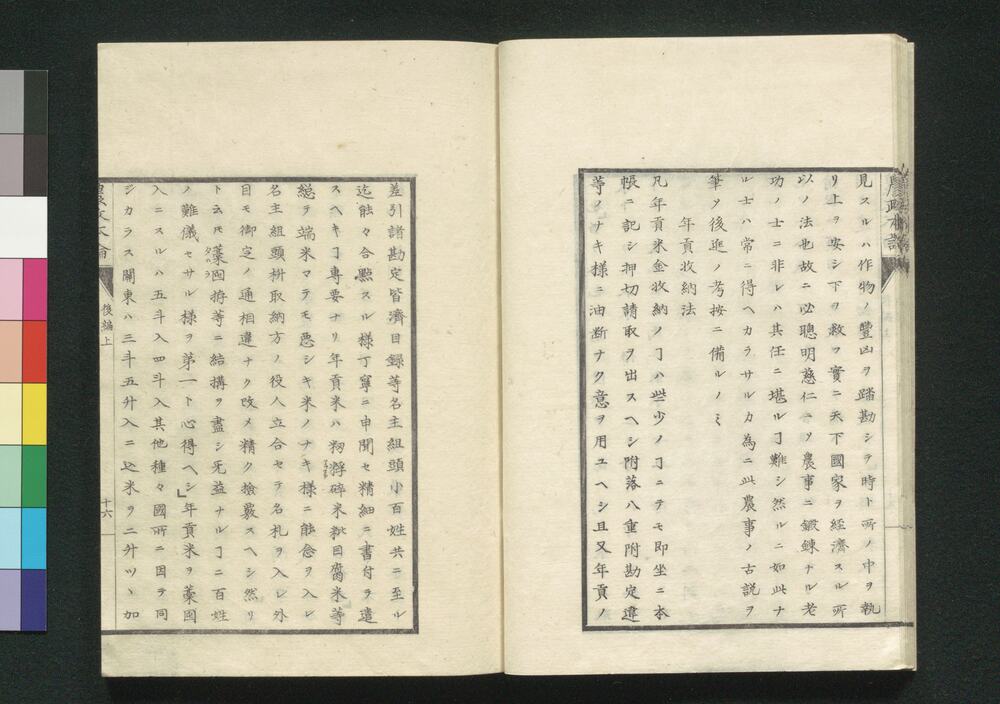 見スルハ作物ノ豐凶ヲ踏勘シテ時ト所ノ中ヲ執
リ上ヲ安シ下ヲ救フ實ニ天下國家ヲ経濟スル所
以ノ法也故ニ必聰明慈仁ニメ農事ニ鍛錬ナル老
功ノ士ニ非レハ其任ニ堪ルヿ難シ然ルニ如此ナ
ル士ハ常ニ得ヘカラサルカ為ニ此農事ノ古説ヲ
筆メ後進ノ考按ニ備ルノミ
年貢收納法
凡年貢米金收納ノヿハ些少ノヿニテモ即坐ニ本
帳ニ記シ押切請取ヲ出スヘシ附落八重附勘定違
等ノナキ様ニ油断ナク意ヲ用ユヘシ且又年貢ノ
差引諸勘定皆濟目録等名主組頭小百姓共ニ至ル
迄能々合點スル様丁寧ニ申聞セ精細ニ書付ヲ遣
スヘキヿ專要ナリ年貢米ハ籾浮碎米粃目腐米等
總テ端米マテモ悪シキ米ノナキ様ニ能念ヲ入レ
名主組頭枡取納方ノ役人立合セテ名札ヲ入レ外
目モ御定ノ通相違ナク改メ精ク撿覈スヘシ然リ
ト云モ藁囤拵等ニ結搆ヲ盡シ旡益ナルヿニ百姓
タハラ
ノ難儀セサル様ヲ第一ト心得ヘシ」年貢米ヲ藁囤
入ニスルハ五斗入四斗入其他種々國所ニ因テ同
シカラス關東ハ三斗五升入ニ込米ヲ二升ツヽ加
後編上
十六